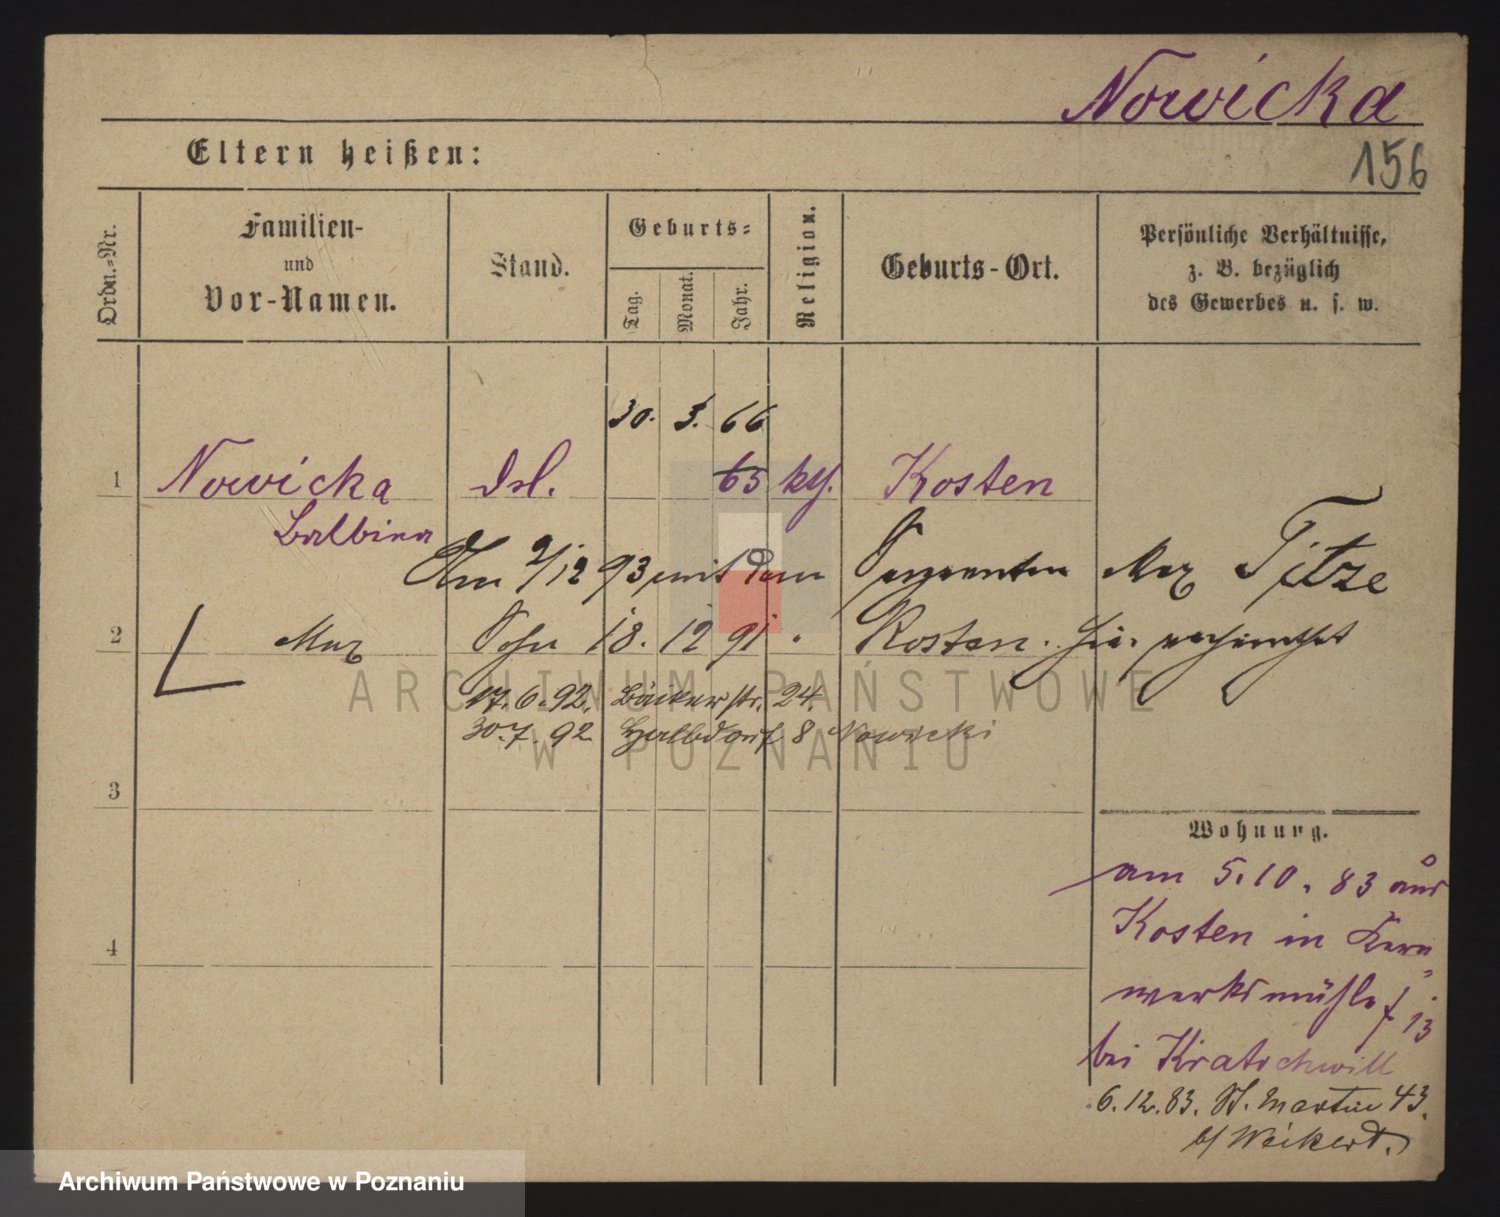 Nowicka
156
Eltern heißen:
Ordn.=Nr.
Familien-
und
Vor-Namen.
Stand.
Geburts=
Tag.
Monat.
Jahr.
Religion.
Geburts-Ort.
Persönliche Verhältnisse,
z. B. bezüglich
des Gewerbes u. s. w.
30. 3. 66
1 Nowicka 65 kth. Kosten
Balbina
Am 9/12 93 mit dem Sergeanten Max Titze
2 Max Sohn 18. 12 91 Kosten.
17.6.92. Bäckerstr. 24.
30.7.92 Halbdorf 8 Nowicki
3
Wohnung.
am 5.10.83 aus
Kosten in Kern=
werksmühle
bei Kratochwill
4
6.12.83. St. Martin 43.
b/ Weikert.
ARCHIWUM PAŃSTWOWE
W POZNANIU
Archiwum Państwowe w Poznaniu